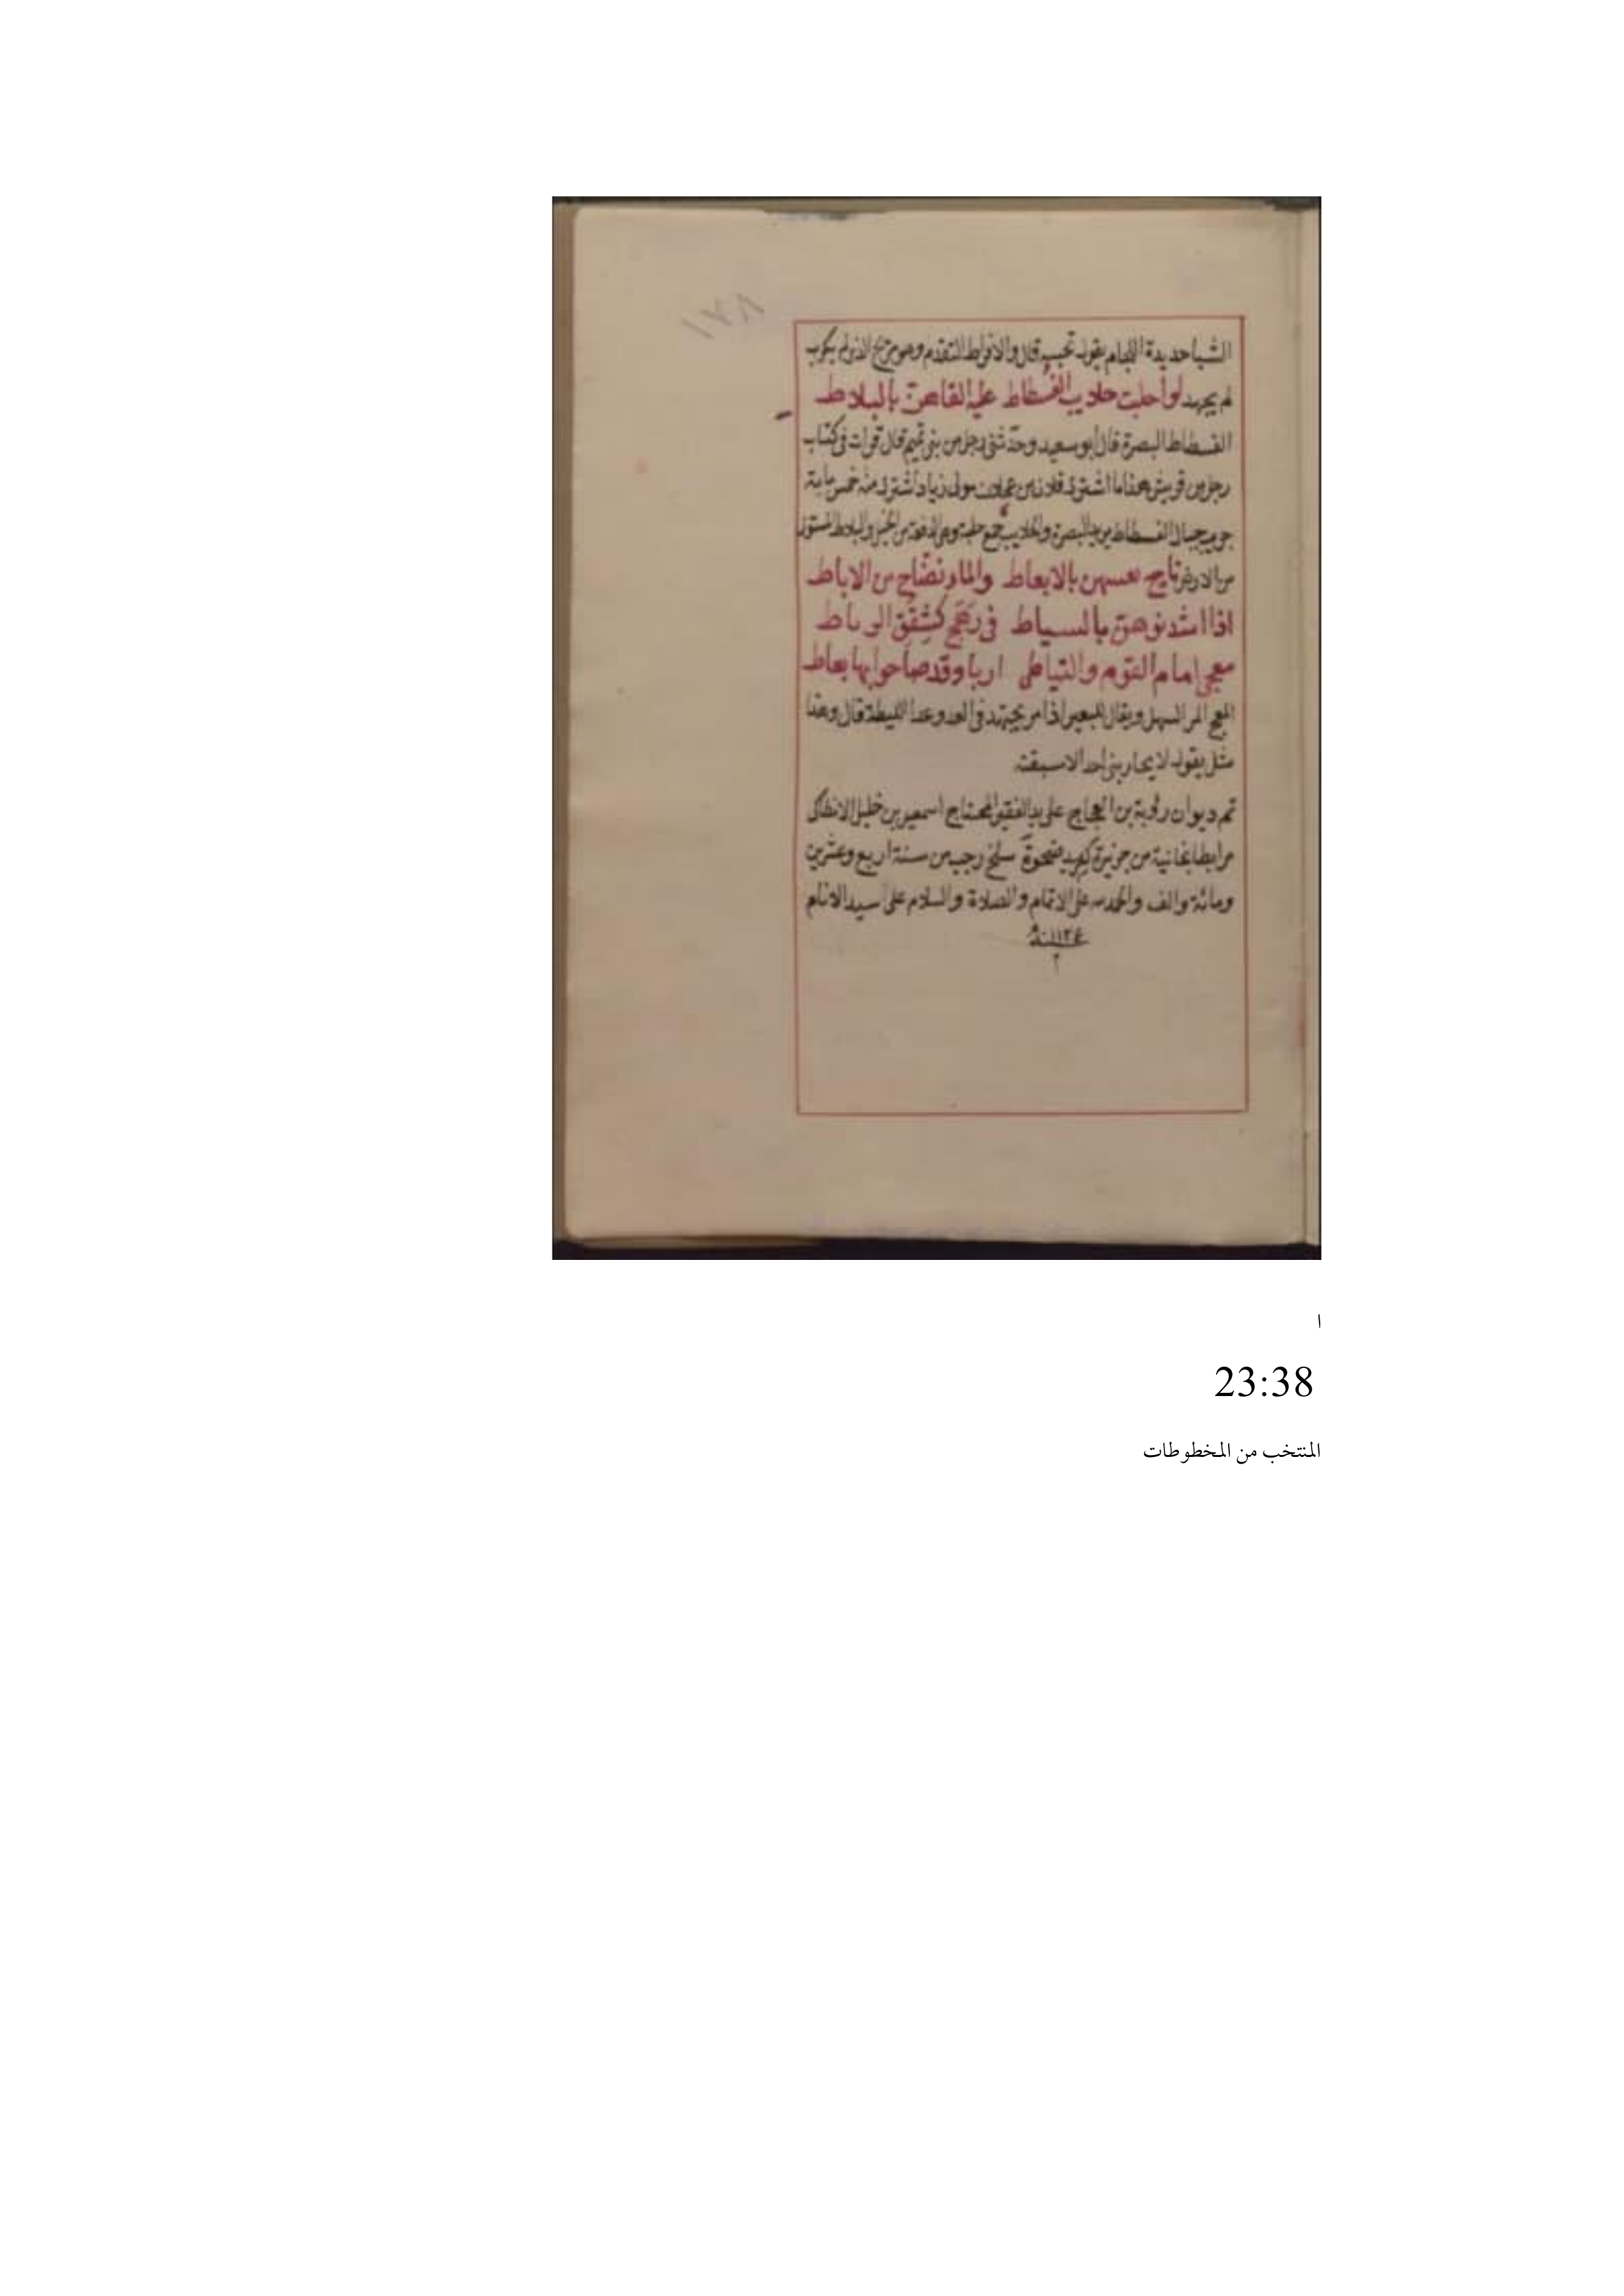 ١٧٨
الشبا حديدة اللجام يقول تجبسه قال والافراط التقدم وهو مرتج الذى لم يكرب
لم يجهد لو أحلبت حلايب الفسطاط عليه القاهن بالبلاط
الفسطاط البصرة قال أبو سعيد وحدثنى رجل من بنى تميم قال قرات فى كتاب
رجل من قريش هذا ما اشترى فلان بن مولى زياد اشترى منه خمس ماية
جريب حيال الفسطاط يريد البصرة والحلايب جمع حلبة وهى الدفعة من الخيل والبلاط المستوى
من الارض بالابعاط والماء نضاح من الاباط
اذا اشدنوهن بالسياط فى رهج كشقق الرباط
معجى امام القوم والتياطى اربا وقد صاحوا بها يعاط
المعج المر السهل ويقال للبعير اذا مر يجتهد فى العدو عدا اللبطة قال وهذا
مثل يقول لا يحاربنى احد الا سبقته
تم ديوان رؤبة بن العجاج على يد الفقير المحتاج اسمعيل بن خليل الانطاكى
مرابطا بخانية من جزيرة كريد ضحوة سلخ رجب من سنة اربع وعشرين
ومائة والف والحمد لله على الاتمام والصلاة والسلام على سيد الانام
سنة ١١٢٤
م
ا
23:38
المنتخب من المخطوطات